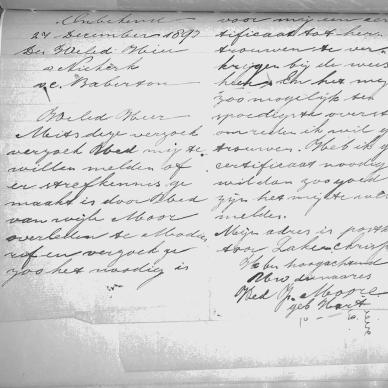 Onbekend
27 December 1897
Den Weled Heer
a Niekerk
v.c. Baberton
Weled Heer
Mits deze verzoek
verzoek Wed mij te
willen melden of
er sterfkennis ge
maakt is door Wed
van wijle Moore
overleden te Modder
en verzoek ze
zoo het noodig is
voor mij een cer
tificaat tot her
trouwen te ver
krijgen bij de wees
heer En het mij
zoo mogelijk ten
spoedigste overst
om reden ik wil
trouwen. Heb ik
certificaat noodig
wil dan zoo goed
zijn het mij te
melden.
Mijn adres is post
toor Lake Chrissi
hoogachtend
Uw dienaares
Wed J. Moore
geb Hart